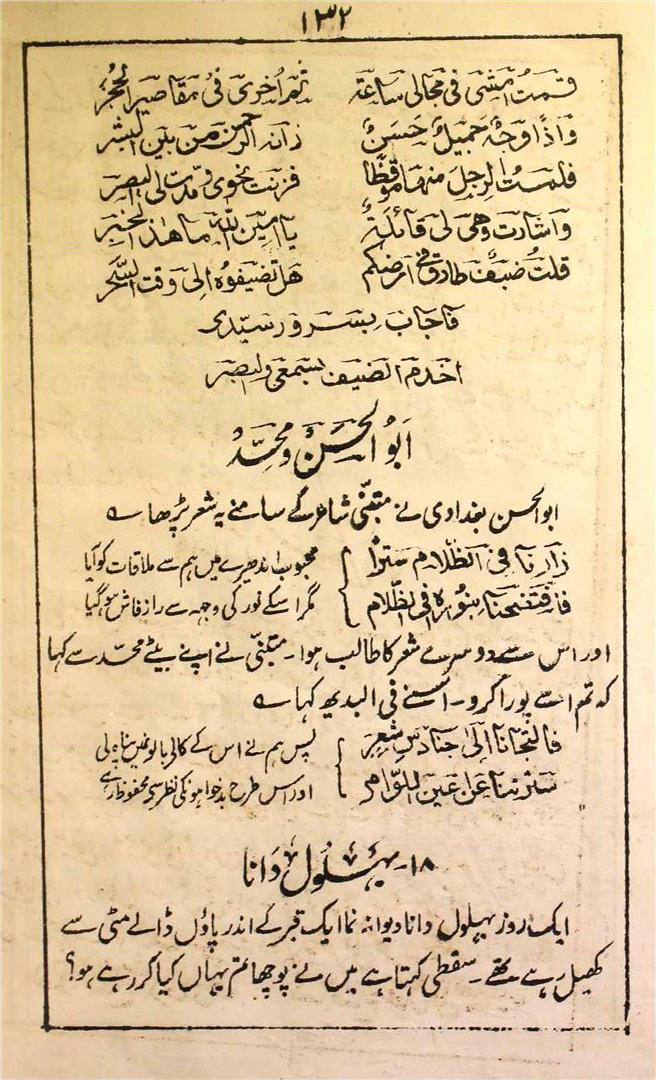 ۱۳۲
فقمت امشی فی مجالی ساعة ثم اخری فی مقاصیر الحجر
واذا وجه جمیل حسن زانه الرحمن من بین البشر
فلمست الرجل منها موقظا فرنت نحوی ومدت لی البصر
واشارت وهی لی قائلة یا امین الله ما هذا الخبر
قلت ضیف طارق فی ارضکم هل تضیفوه الی وقت السحر
فاجاب بسرور سیدی
اخدم الضیف بسمعی والبصر
ابو الحسن و محمد
ابو الحسن بغدادی نے متبنّی شاعر کے سامنے یہ شعر پڑھا ؎
زارنا فی الظلام سترا محبوب اندھیرے میں ہم سے ملاقات کو آیا
فافتضحنا بنوره فی الظلام مگر اسکے نور کی وجہ سے راز فاش ہو گیا
اور اس سے دوسرے شعر کا طالب ہوا۔ متبنّی نے اپنے بیٹے محمد سے کہا
کہ تم اسے پورا کرو۔ اسنے فی البدیہہ کہا ؎
فالتجانا الی حنادس شعر پس ہم نے اس کے کالے بالوں میں پناہ لی
سترنا عن عین اللوام اور اس طرح بدخواہوں کی نظر سے محفوظ رہے
۱۸۔ بہلول دانا
ایک روز بہلول دانا دیوانہ نما ایک قبر کے اندر پاؤں ڈالے مٹی سے
کھیل رہے تھے۔ سقطی کہتا ہے میں نے پوچھا تم یہاں کیا کر رہے ہو؟